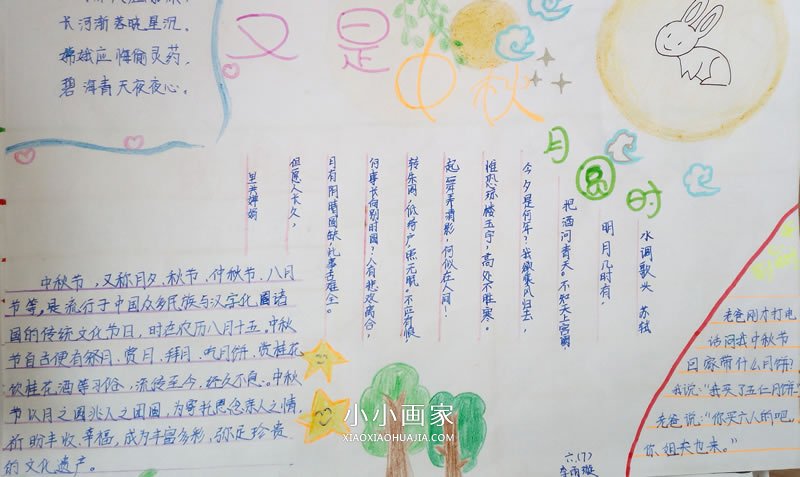 长河渐落晓星沉。
嫦娥应悔偷灵药,
碧海青天夜夜心。
又是中秋
月圆时
水调歌头 苏轼
明月几时有,
把酒问青天。不知天上宫阙
今夕是何年?我欲乘风归去,
惟恐琼楼玉宇,高处不胜寒。
起舞弄清影,何似在人间!
转朱阁,低绮户,照无眠。不应有恨
何事长向别时圆?人有悲欢离合,
月有阴晴圆缺,此事古难全。
但愿人长久,
里共婵娟
中秋节,又称月夕、秋节、仲秋节、八月
节等,是流行于中国众多民族与汉字化圈诸
国的传统文化节日,时在农历八月十五。中秋
节自古便有祭月、赏月、拜月、吃月饼、赏桂花、
饮桂花酒等习俗,流传至今,经久不息。中秋
节以月之圆兆人之团圆,为寄托思念亲人之情,
祈盼丰收、幸福,成为丰富多彩,弥足珍贵
的文化遗产。
老爸刚才打电
话问我中秋节
回家带什么月饼?
我说:“我买了五仁月饼
老爸说:“你买六人的吧,
你姐夫也来。”
六.(7)
李雨璇
小小画家
XIAOXIAOHUAJIA.COM